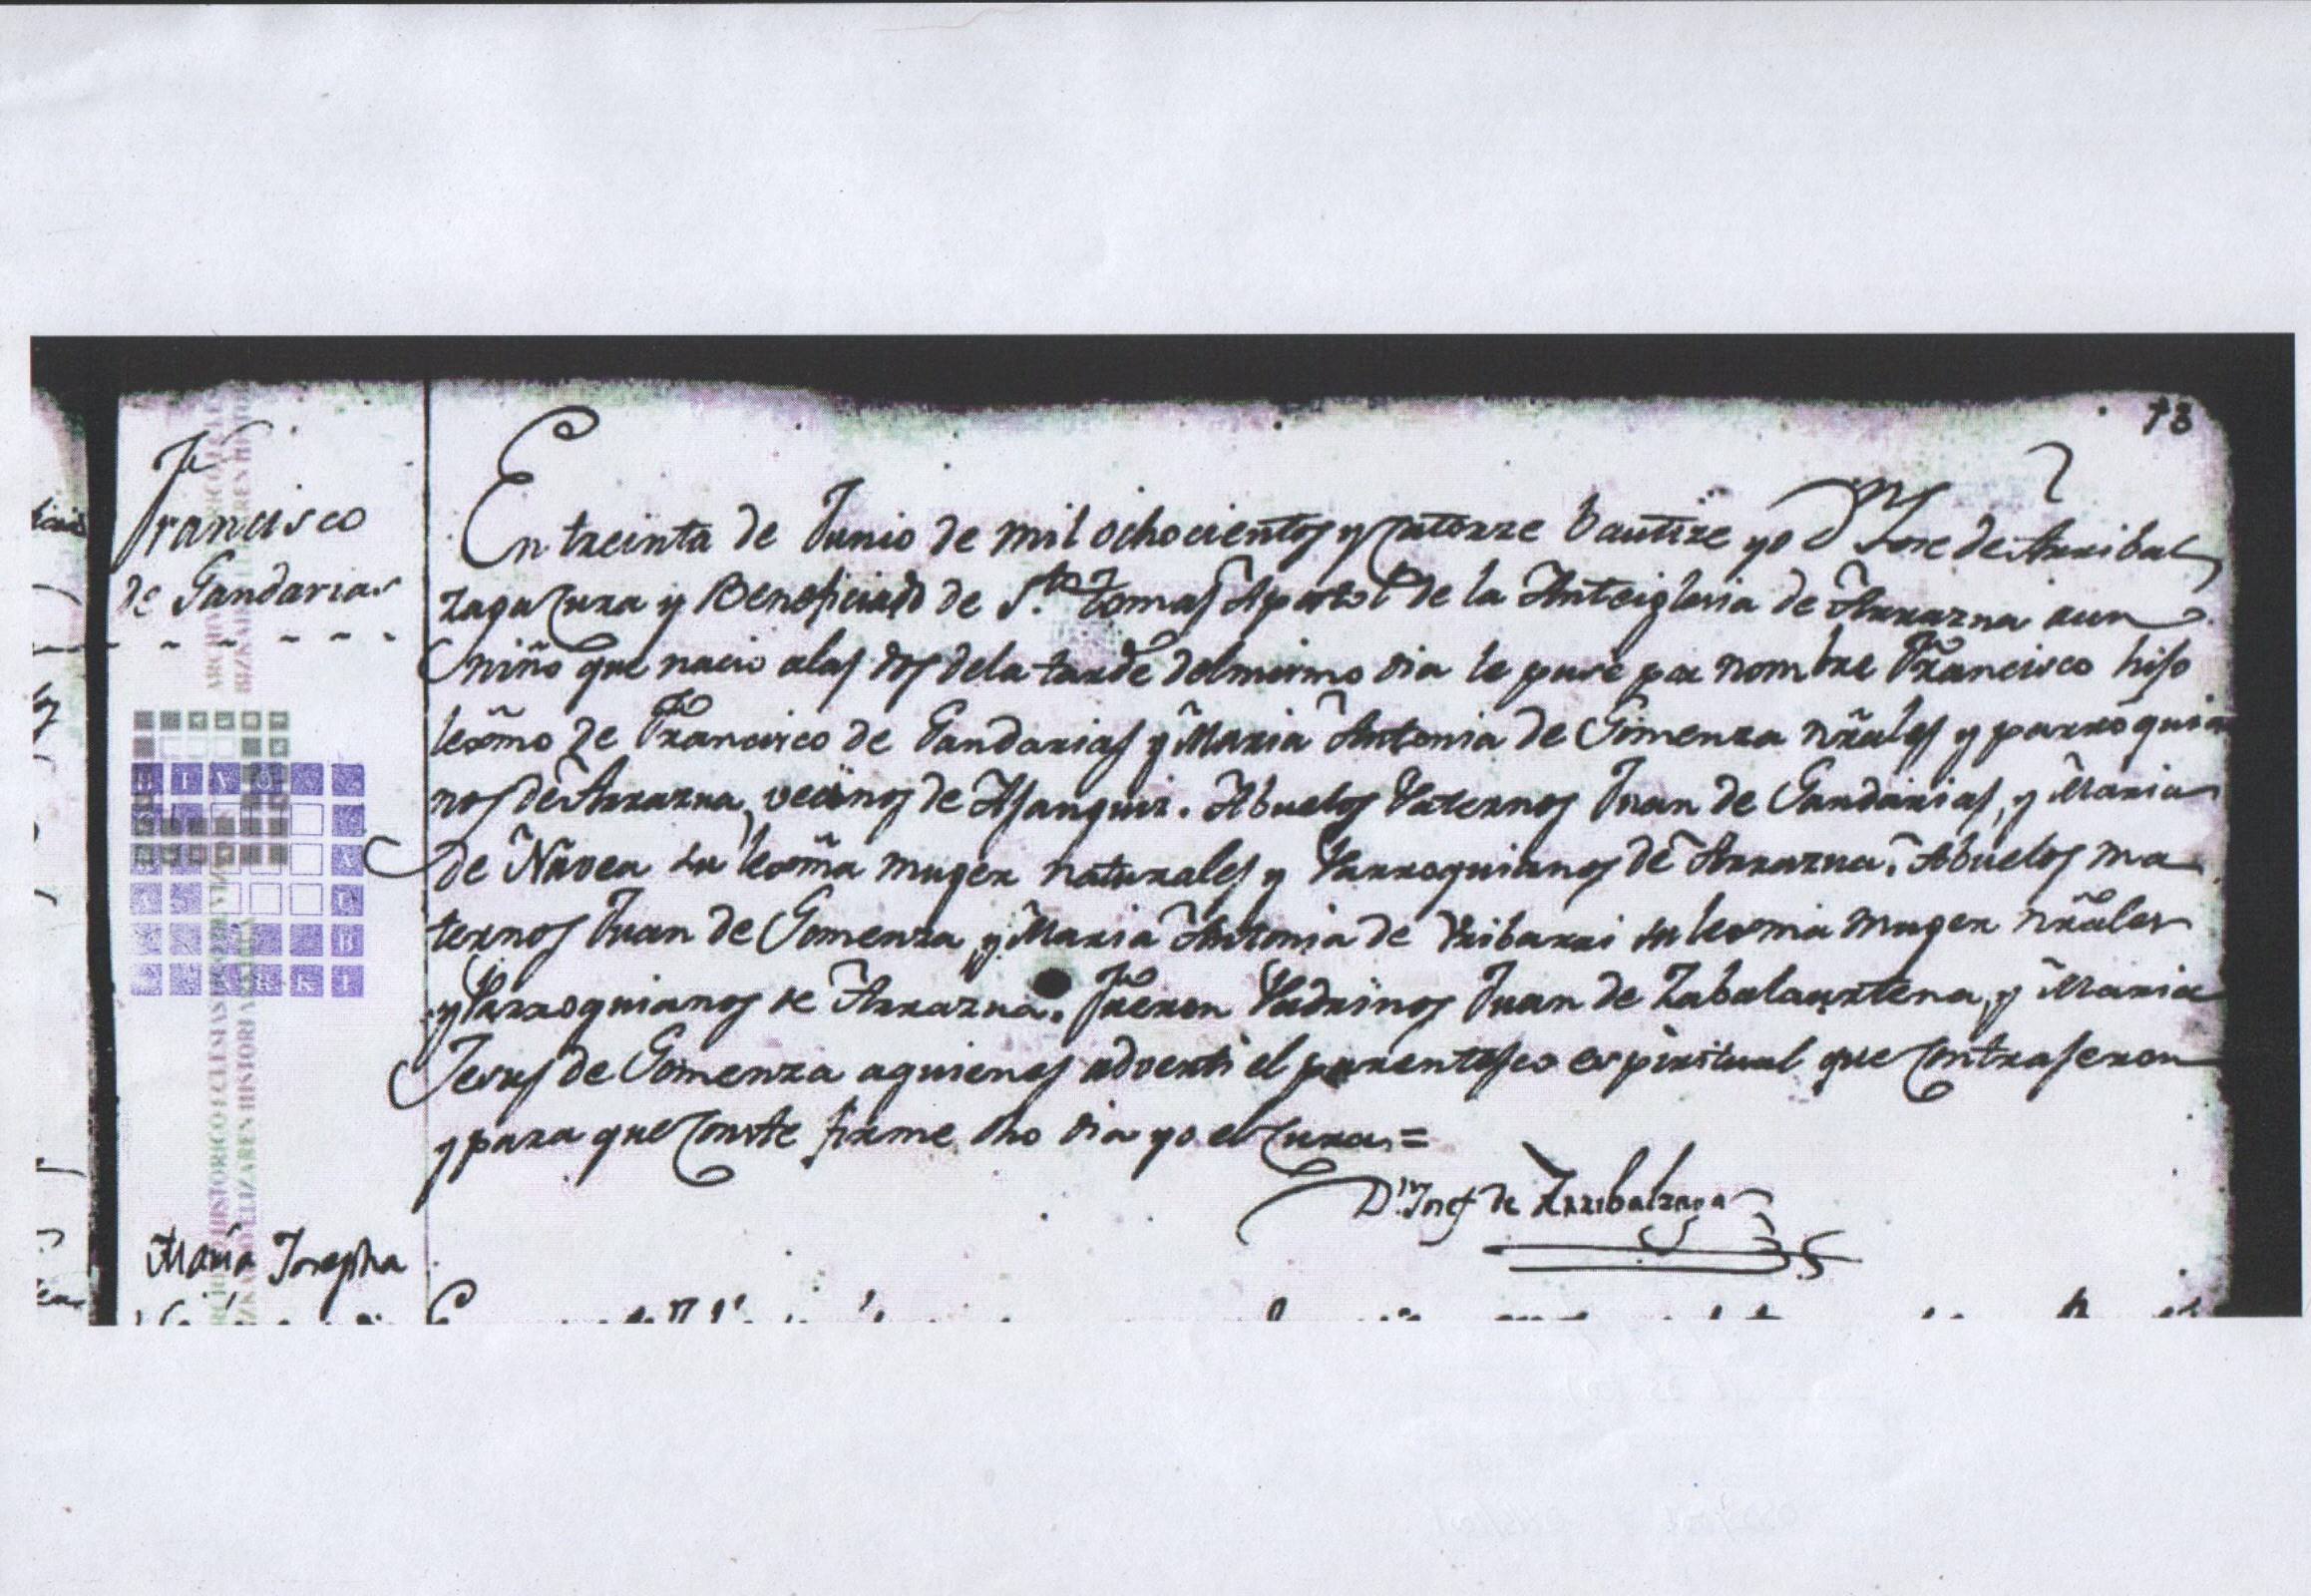 13
Francisco
de Gandarias
En treinta de Junio de mil ochocientos y catorze bautize yo Dn Jose de Arribal
zaga Cura y Beneficiado de Sto tomas Apostol de la Anteiglesia de Arrazua aun
niño que nacio alas dos dela tarde delmismo dia le puse por nombre Francisco hijo
lexmo de Francisco de Gandarias y Maria Antonia de Gomenza nrales y parroquia
nos de Arrazua, vecinos de Ajanguiz. Abuelos Paternos Juan de Gandarias, y Maria
de su lexma muger naturales y Parroquianos de Arrazua. Abuelos ma
ternos Juan de Gomenza y Maria Antonia de Uribarri su lexma muger nrales
y Parroquianos de Arrazua. Fueron Padrinos Juan de Zabalaurtena, y Maria
Jesus de Gomenza aquienes adverti el parentesco espiritual que contrajeron
y para que conste firme dho dia yo el Cura. =
Dn Josef de Arribalzaga
Maria Josepha